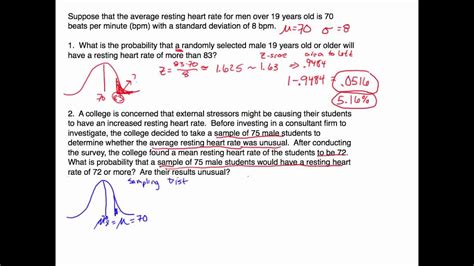 Suppose that the average resting heart rate for men over 19 years old is 70
beats per minute (bpm) with a standard deviation of 8 bpm. μ=70 σ=8
1. What is the probability that a randomly selected male 19 years old or older will
have a resting heart rate of more than 83? z-score area to left
z = 83-70 / 8 = 1.625 ~ 1.63 → .9484
1-.9484 = .0516
70 83 ?
5.16%
2. A college is concerned that external stressors might be causing their students
to have an increased resting heart rate. Before investing in a consultant firm to
investigate, the college decided to take a sample of 75 male students to
determine whether the average resting heart rate was unusual. After conducting
the survey, the college found a mean resting heart rate of the students to be 72.
What is probability that a sample of 75 male students would have a resting heart
rate of 72 or more? Are their results unusual?
sampling dist
μx̄ = μ = 70